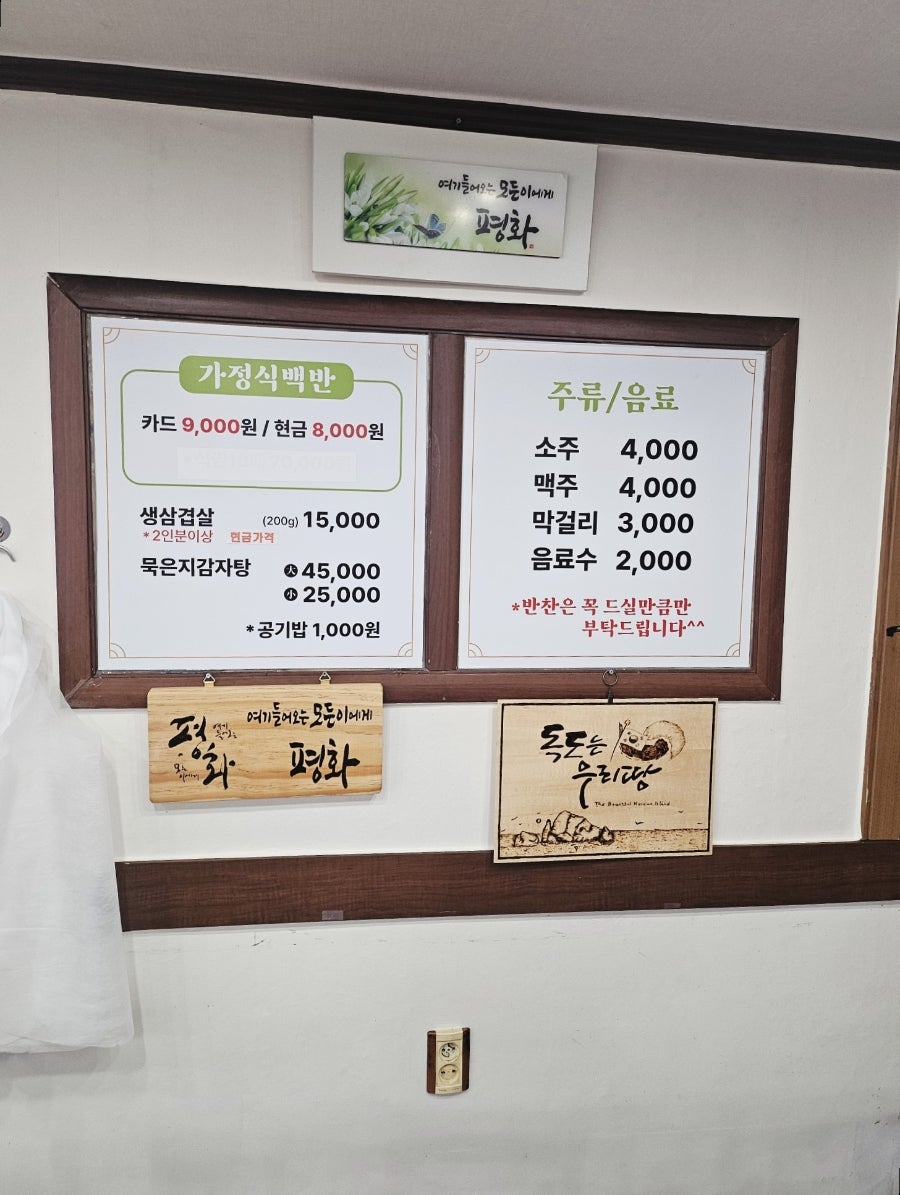 여기들어오는 모든이에게
평화
가정식백반
카드 9,000원 / 현금 8,000원
생삼겹살 (200g) 15,000
*2인분이상 현금가격
묵은지감자탕 大 45,000
小 25,000
*공기밥 1,000원
주류/음료
소주 4,000
맥주 4,000
막걸리 3,000
음료수 2,000
*반찬은 꼭 드실만큼만
부탁드립니다^^
평화
여기들어오는 모든이에게
평화
독도는
우리땅
The Beautiful Korean Island